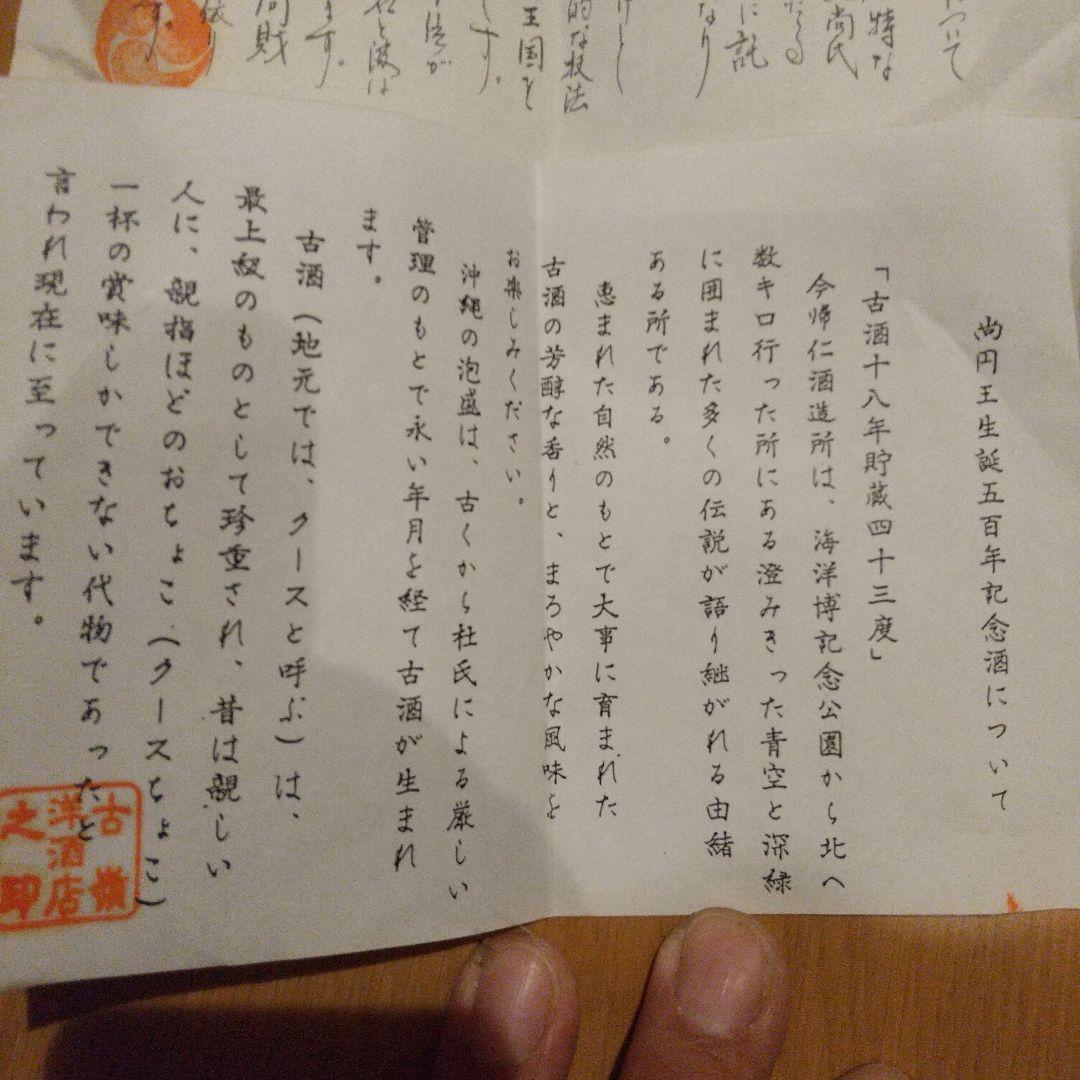 ついて
特な
尚氏
に託
なり
的な技法
王国を
す。
法が
と波は
ます。
財
す。
尚円王生誕五百年記念酒について
「古酒十八年貯蔵四十三度」
今帰仁酒造所は、海洋博記念公園から北へ
数キロ行った所にある澄みきった青空と深緑
に囲まれた多くの伝説が語り継がれる由緒
ある所である。
恵まれた自然のもとで大事に育まれた
古酒の芳醇な香りと、まろやかな風味を
お楽しみください。
沖縄の泡盛は、古くから杜氏による厳しい
管理のもとで永い年月を経て古酒が生まれ
ます。
古酒(地元では、クースと呼ぶ)は、
最上級のものとして珍重され、昔は親しい
人に、親指ほどのおちょこ(クースちょこ)
一杯の賞味しかできない代物であったと
言われ現在に至っています。
古嶺
洋酒店
之印